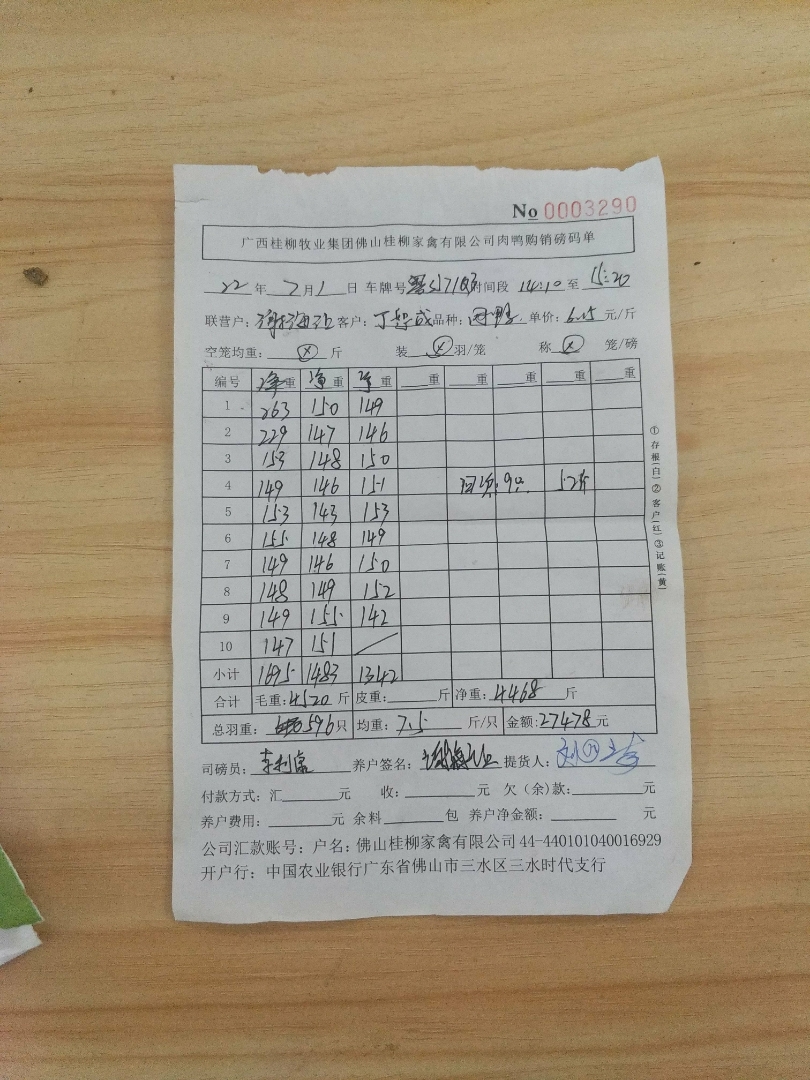 No 0003290
广西桂柳牧业集团佛山桂柳家禽有限公司肉鸭购销磅码单
22 年 7 月 1 日 车牌号 时间段 14:10 至 15:20
联营户: 客户: 丁 成 品种: 鸭 单价: 6.15 元/斤
空笼均重: × 斤 装 × 羽/笼 称 × 笼/磅
编号 净重 净重 净重 重 重 重 重 重
1 263 150 149
2 229 147 146
3 153 148 150
4 149 146 151 9只 52斤
5 153 143 153
6 155 148 149
7 149 146 150
8 148 149 152
9 149 155 142
10 147 151
小计 1695 1483 1342
合计 毛重: 4520 斤 皮重: 斤 净重: 4468 斤
总羽重: 596 只 均重: 7.5 斤/只 金额: 27478 元
司磅员: 养户签名: 提货人:
付款方式: 汇 元 收: 元 欠（余）款: 元
养户费用: 元 余料 包 养户净金额: 元
公司汇款账号: 户名: 佛山桂柳家禽有限公司 44-440101040016929
开户行: 中国农业银行广东省佛山市三水区三水时代支行
①存根(白)②客户(红)③记账(黄)